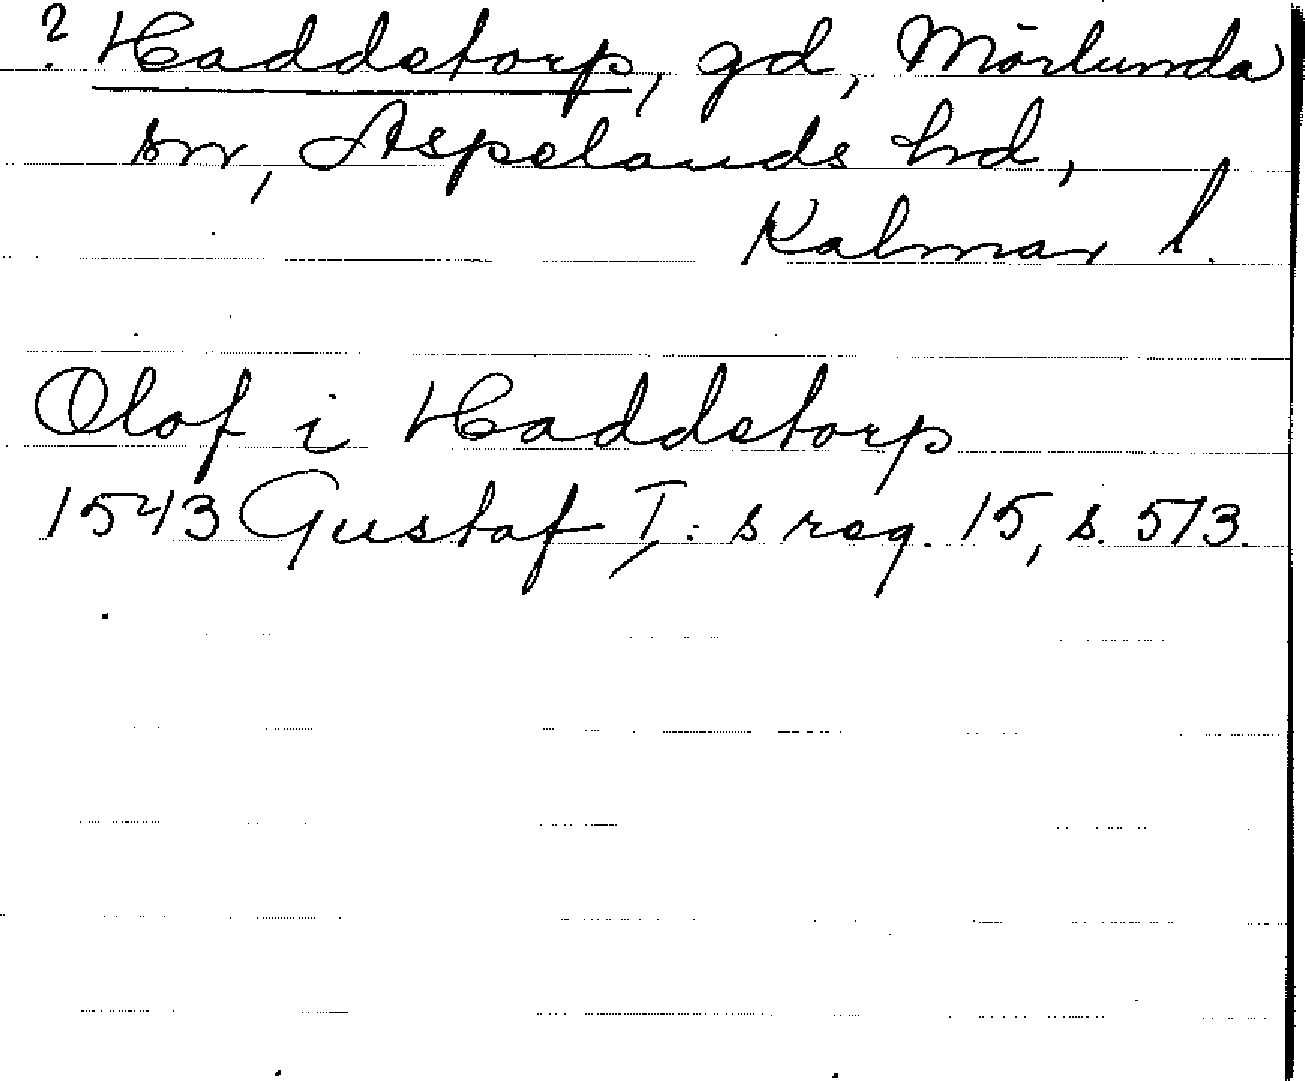 ? Haddetorp, gd, Mörlunda
sn, Aspelands hd,
Kalmar l.
Olof i Haddetorp
1543 Gustaf I:s reg. 15, s. 513.